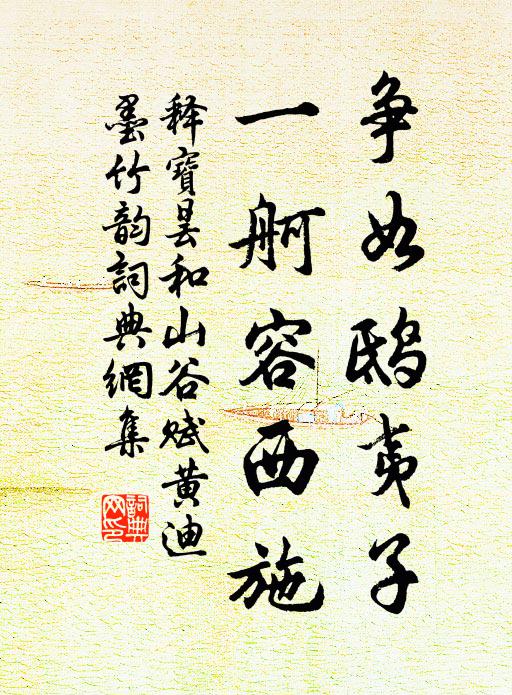 争如鸱夷子
一舸容西施
释寶昙和山谷赋黄迪
墨竹韵詞典網集
詞典
网印